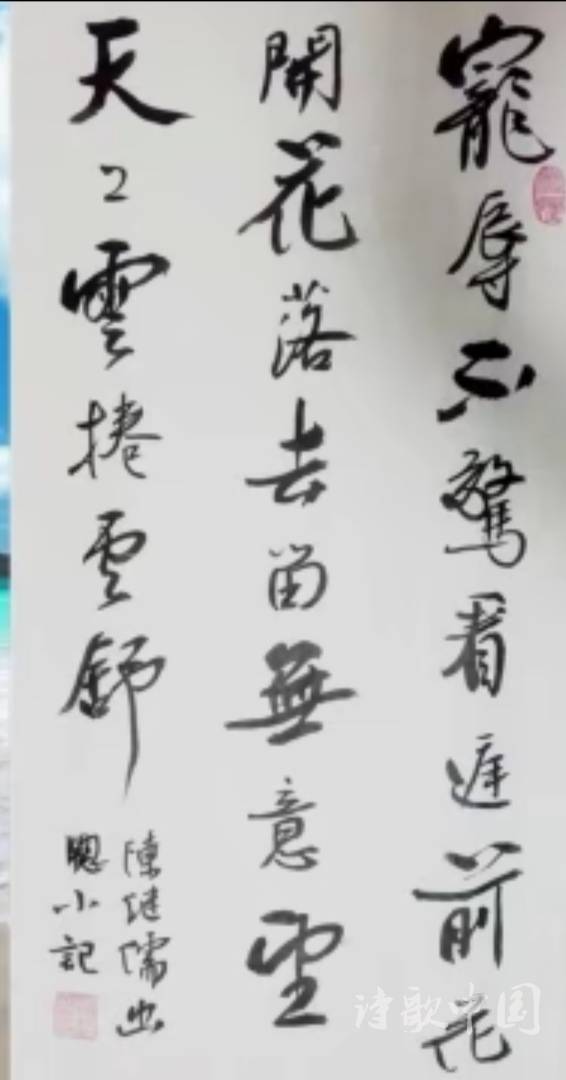 寵辱不驚看庭前花
開花落去留無意望
天上雲捲雲舒
陳继儒幽
窻小記
诗歌中国